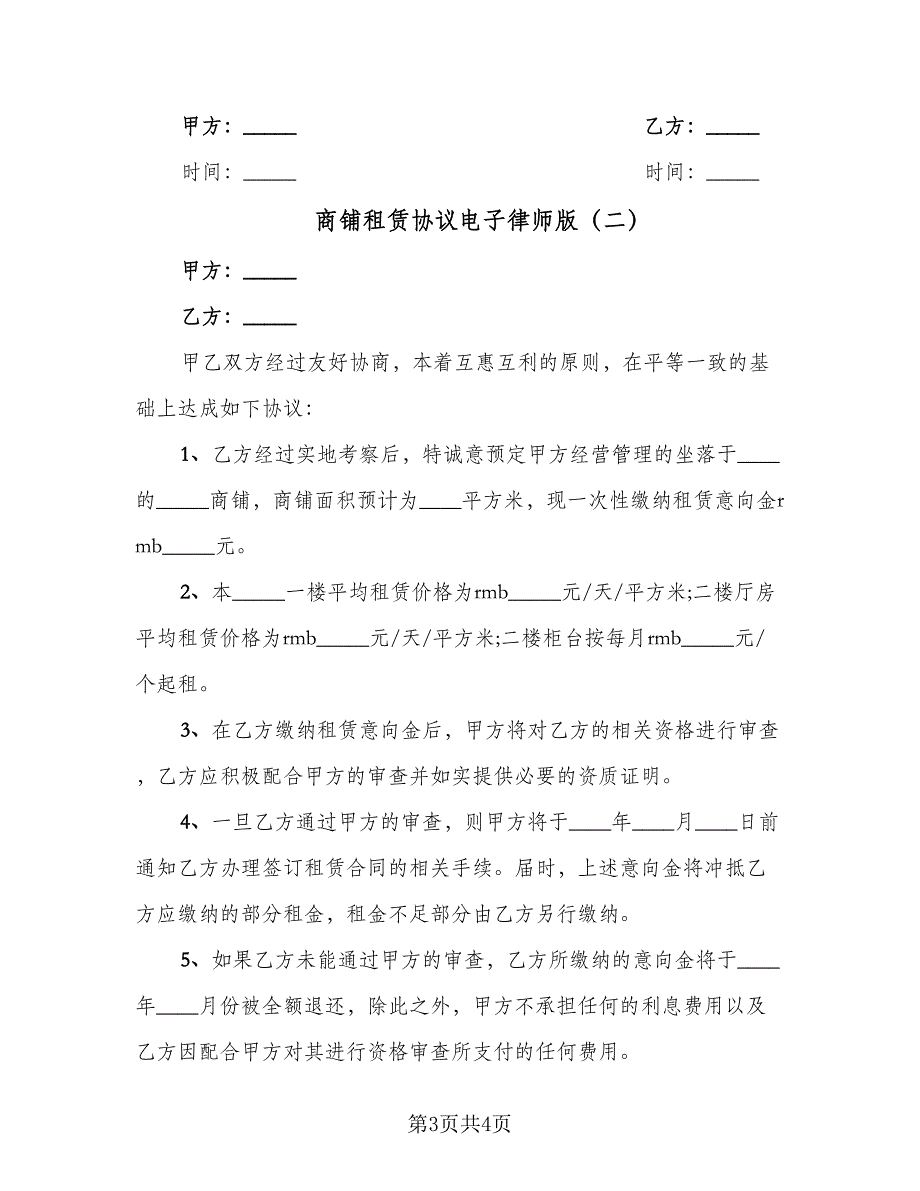 甲方：_____ 乙方：_____
时间：_____ 时间：_____
商铺租赁协议电子律师版（二）
甲方：_____
乙方：_____
甲乙双方经过友好协商，本着互惠互利的原则，在平等一致的基
础上达成如下协议：
1、乙方经过实地考察后，特诚意预定甲方经营管理的坐落于____
的_____商铺，商铺面积预计为____平方米，现一次性缴纳租赁意向金r
mb_____元。
2、本_____一楼平均租赁价格为rmb_____元/天/平方米;二楼厅房
平均租赁价格为rmb_____元/天/平方米;二楼柜台按每月rmb_____元/
个起租。
3、在乙方缴纳租赁意向金后，甲方将对乙方的相关资格进行审查
，乙方应积极配合甲方的审查并如实提供必要的资质证明。
4、一旦乙方通过甲方的审查，则甲方将于____年____月____日前
通知乙方办理签订租赁合同的相关手续。届时，上述意向金将冲抵乙
方应缴纳的部分租金，租金不足部分由乙方另行缴纳。
5、如果乙方未能通过甲方的审查，乙方所缴纳的意向金将于____
年____月份被全额退还，除此之外，甲方不承担任何的利息费用以及
乙方因配合甲方对其进行资格审查所支付的任何费用。
第3页共4页